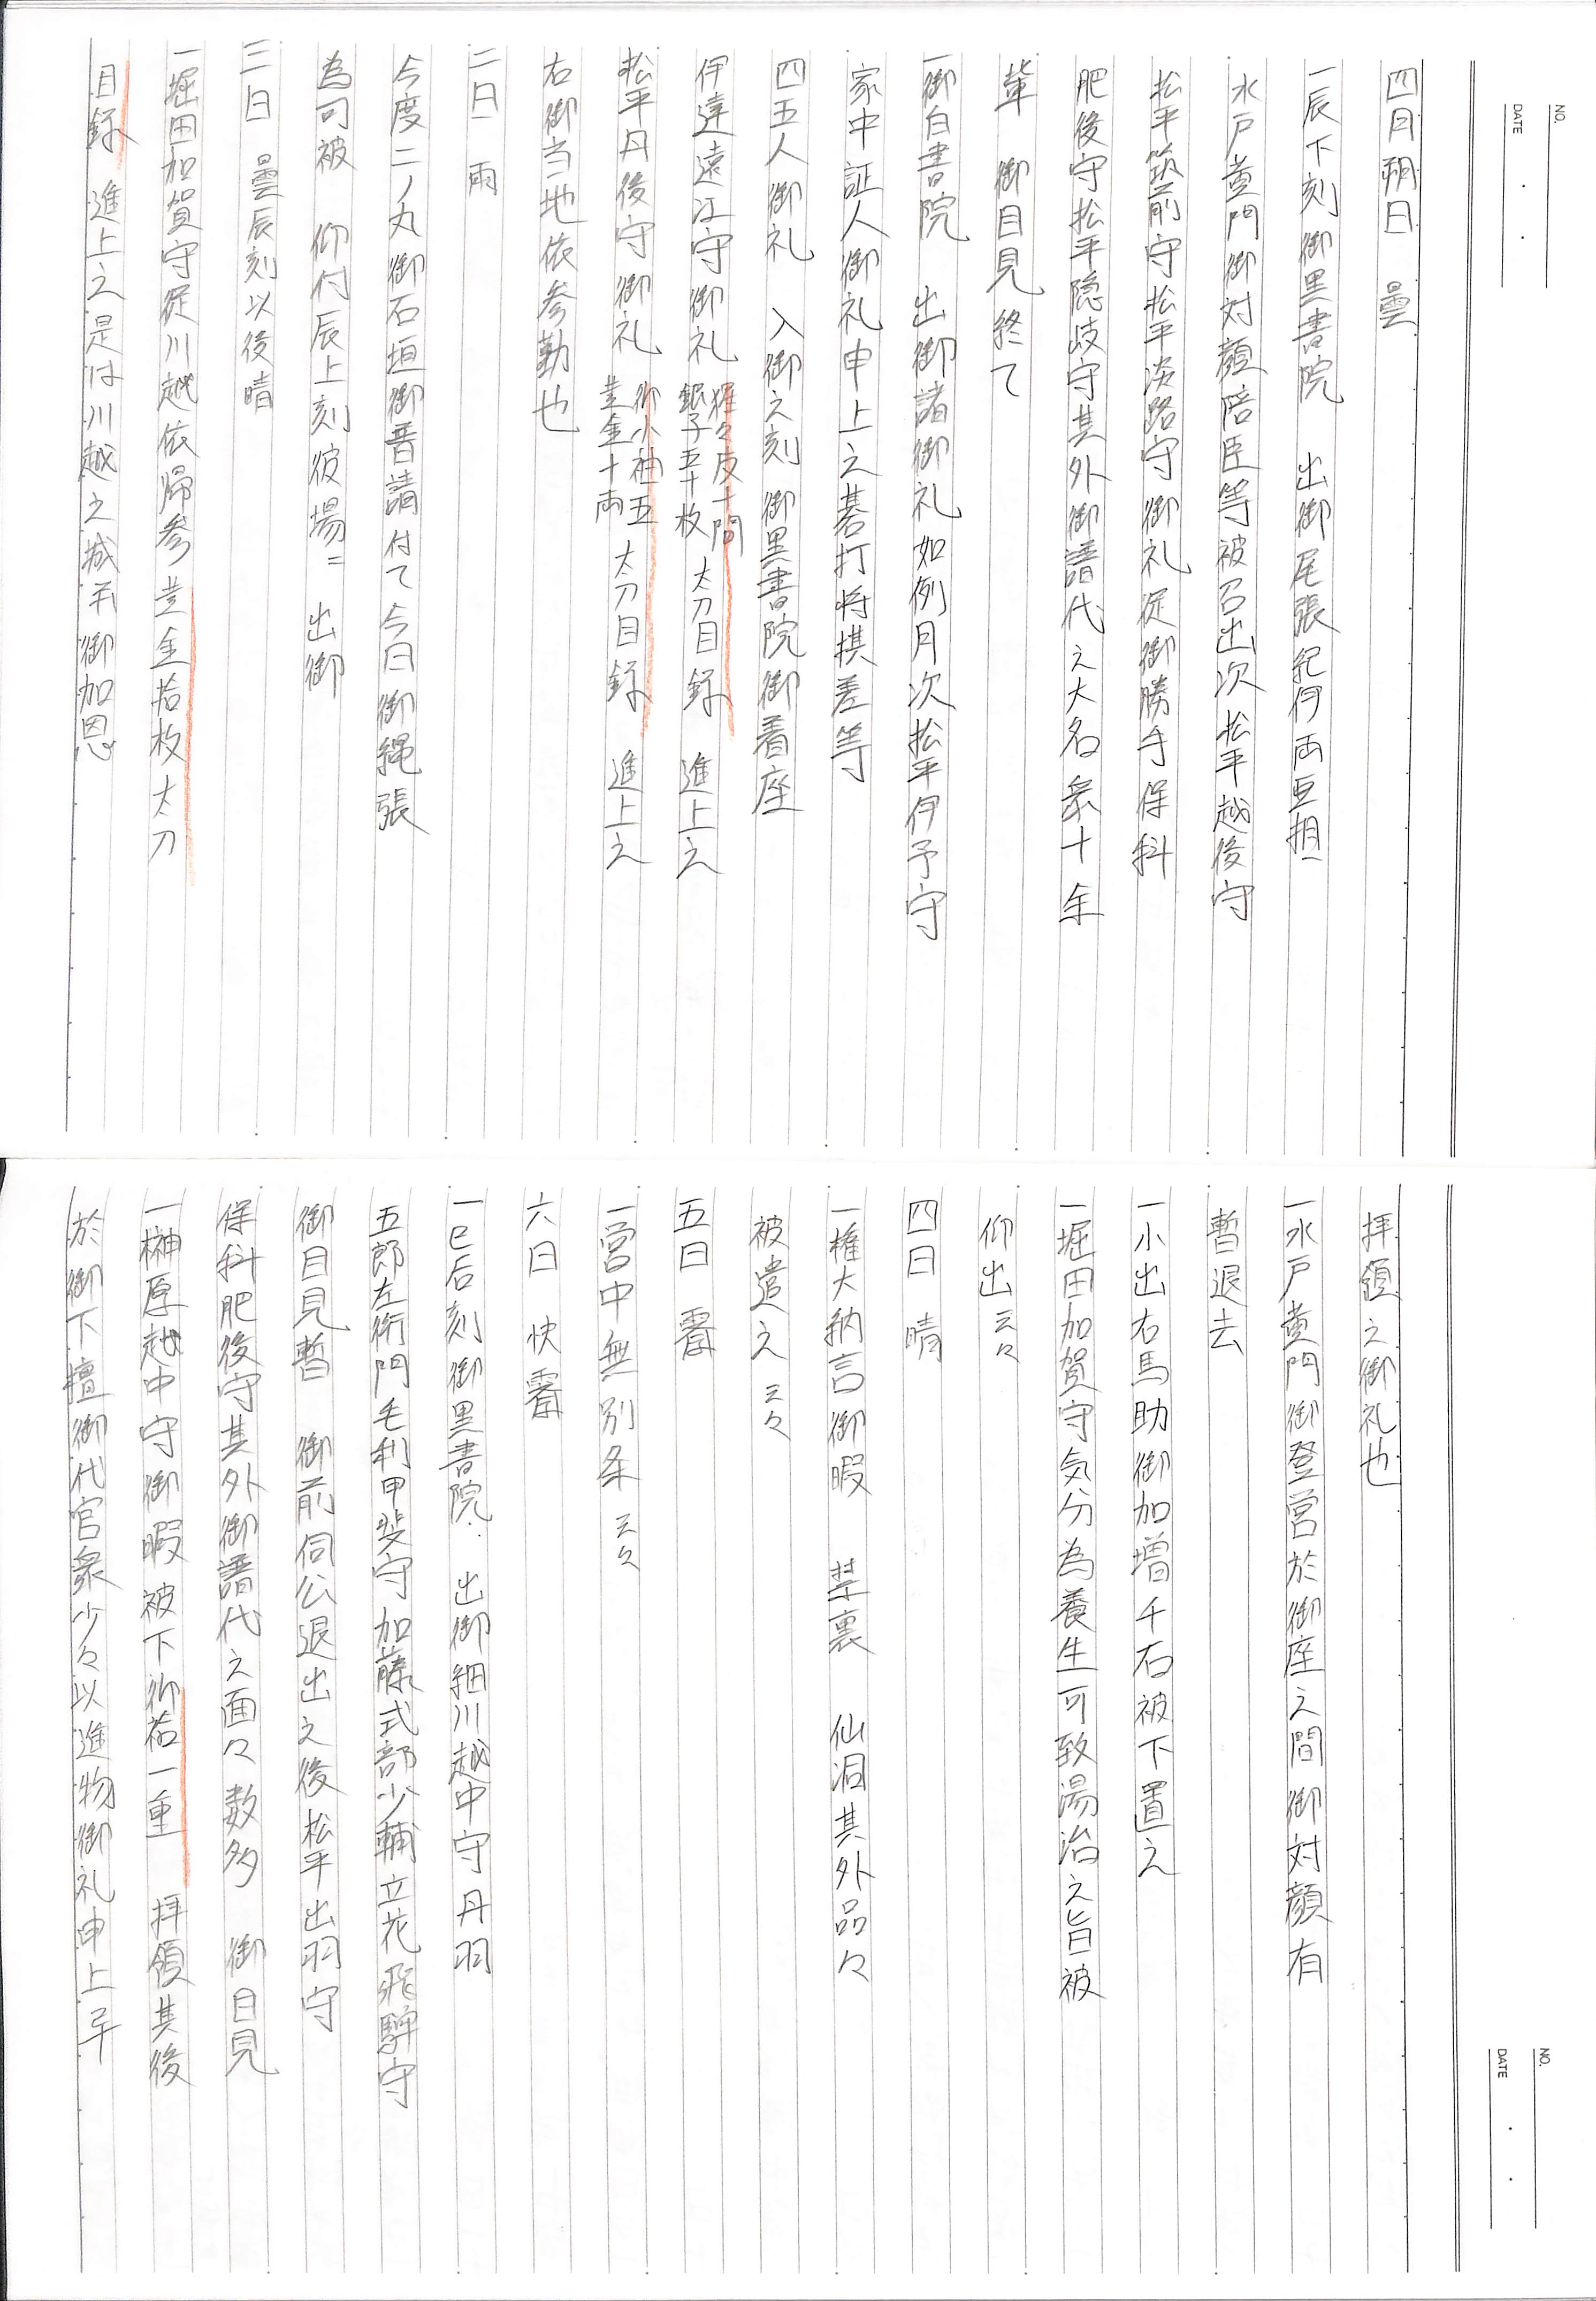 NO.
DATE
四月朔日　曇
一辰下刻御黒書院　出御尾張紀伊両亜相
水戸黄門御対顔陪臣等被召出次松平越後守
松平筑前守松平淡路守御礼従御勝手保科
肥後守松平隠岐守其外御譜代之大名衆十余
輩　御目見終て
一御白書院　出御諸御礼如例月次松平伊予守
家中証人御礼申上之碁打将棋差等
四五人御礼　入御之刻御黒書院御着座
伊達遠江守御礼　猩々皮十間　銀子五十枚　太刀目録　進上之
松平丹後守御礼　御小袖五　黄金十両　太刀目録　進上之
右御当地依参勤也
二日　雨
今度二ノ丸御石垣御普請付て今日御縄張
為可被　仰付辰上刻彼場ニ　出御
三日　曇辰刻以後晴
一堀田加賀守従川越依帰参黄金拾枚太刀
目録　進上之是は川越之城并御加恩
NO.
DATE
拝領之御礼也
一水戸黄門御登営於御座之間御対顔有
暫退去
一小出右馬助御加増千石被下置之
一堀田加賀守気分為養生可致湯治之旨被
仰出云々
四日　晴
一権大納言御暇　禁裏　仙洞其外品々
被遣之云々
五日　霽
一営中無別条云々
六日　快霽
一巳后刻御黒書院　出御細川越中守丹羽
五郎左衛門毛利甲斐守加藤式部少輔立花飛騨守
御目見暫　御前伺公退出之後松平出羽守
保科肥後守其外御譜代之面々数多　御目見
一榊原越中守御暇被下御袷一重　拝領其後
於御下壇御代官衆少々以進物御礼申上于